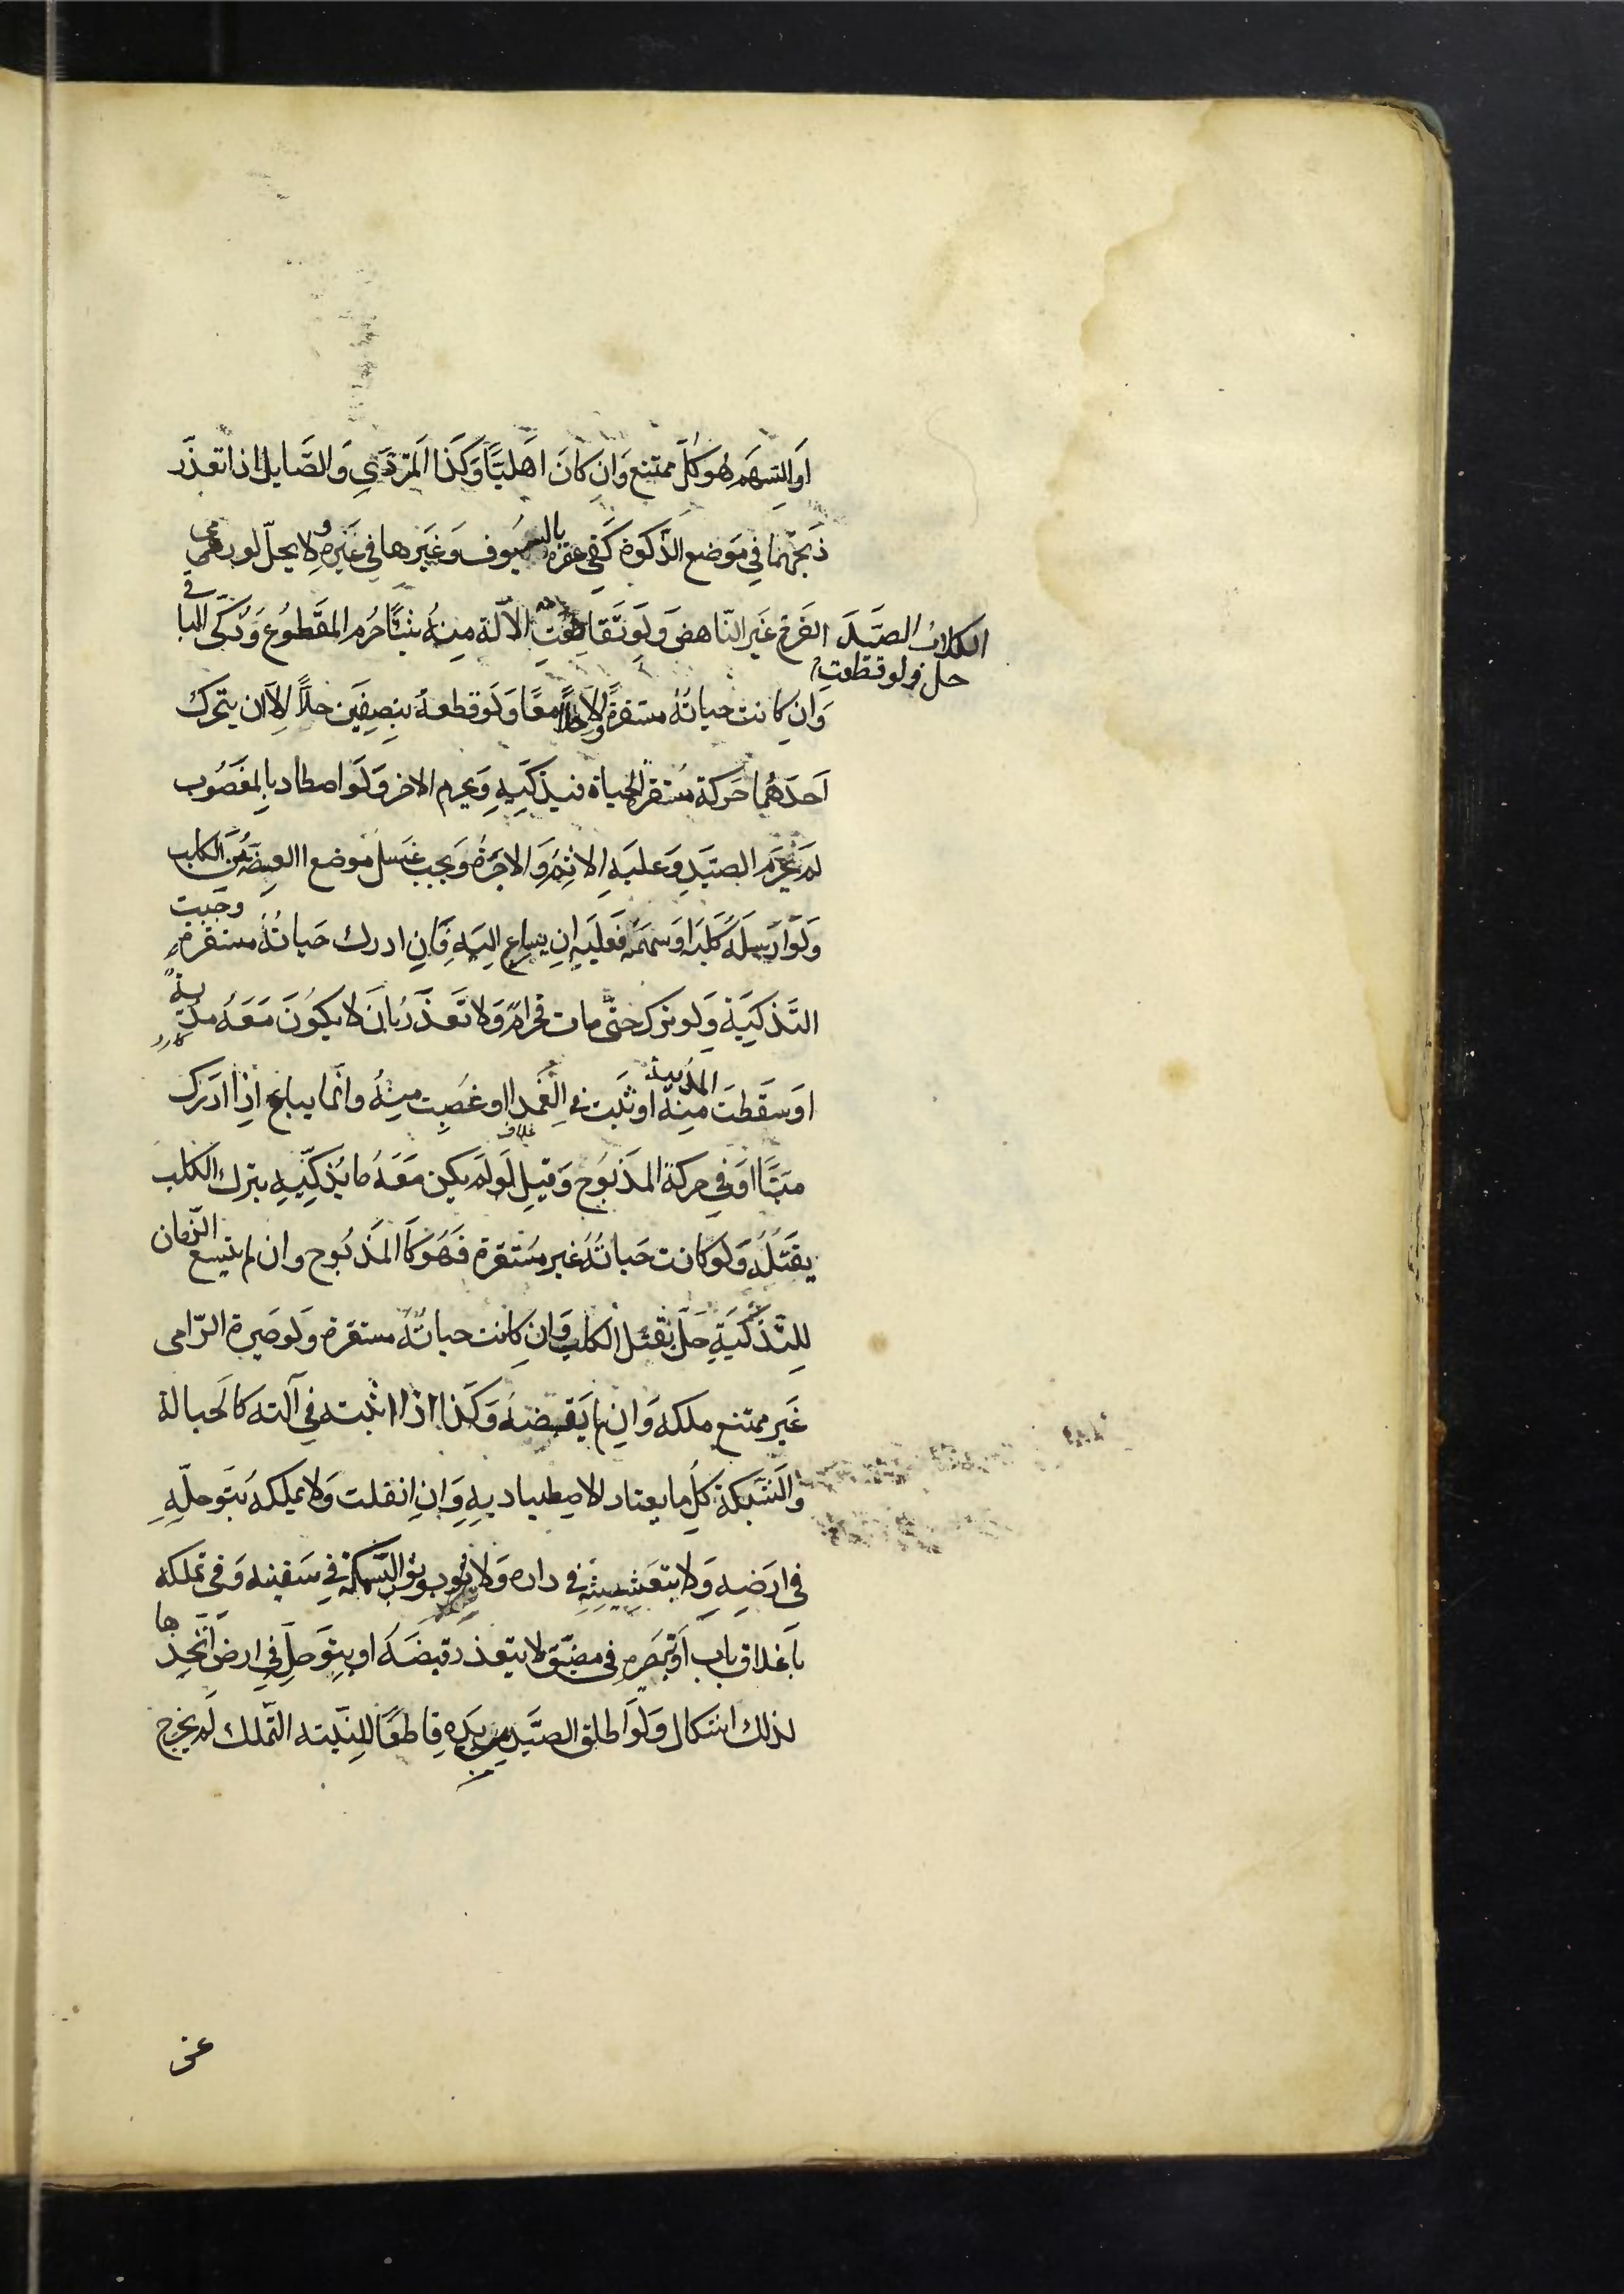 اَو السَهم هو كلّ ممتنع وَان كانَ اَهليًّا وَكَذا المتردّي وَالصَّايل اذا تعذّر
ذبحهما في مَوضع الذّكوة كَفى عقره بالسّيوف وَغَيرها في غَيره ولا يحلّ لو رمى
الفَرخ غَير النّاهض وَلَو تَقاطعت الكلاب الصَّيدَ
حل ولو قطعت
الآلة مِنهُ شيئًا حرُم المقطوُع وَذُكّى الباقي
وَان كانت حياتهُ مستقرةً وَالاحلّا معًا وَلَو قطعهُ بنصفَين حلّا الاّ ان يتحرك
اَحدهُما حَركة مُستقر الحياة فيذكّيهِ وَيحرم الاخر وَلَو اصطاد بالمغصُوب
لم يحرَم الصّيدِ وَعليهِ الاثِم وَالاجرَة وَيجب غَسل موضع العضّة من الكلب
وَلَو ارسلَهُ كَلبَه اوَ سهمَهُ فَعليَه ان يسارع اليَهِ فَانِ ادرك حَياتهُ مستقرة وجَبت
التَذكيَة وَلو ترك حتّى مات فحرامٌ وَلا تعَذّر بان لا يكوُن مَعَهُ مدية
كارد
اوَ سَقطَت منهُ اوَ ثبت في الغمد او غصِبت مِنهُ وانّما يباح اذا ادرَك
المدية
غلاف
ميتًا اوَ في حركة المذبُوح وَقيل لَو لَم يكن مَعَهُ ما يُذكّيهِ يترك الكلب
يقتُلُه وَلَو كانت حَياتهُ غير مُستقرة فَهُوَ كَالمذبُوح وان لم يتسع الزّمان
للِتَّذكيَةِ حَلّ بقَتل الكلب وَان كانت حياتهُ مستقرة وَلو صَيرة الرّامى
غَير ممتنع ملكه وَان لم يَقبضهُ وَكَذا اذا اثبته في آلته كالحبالة
وَالشَبكة وَكلّ ما يعتاد الاصِطياد بِهِ وَانِ انفلت وَلا يملكهُ بتَوحلّهِ
في ارضِهِ وَلا بتعَشِيشِهِ في داره وَلا بوثوب السّمكة في سَفينه وَفي تملكه
باَغلاق باب اوَ تصَيره في مضيّق لا يتعذر قبضَهُ او بتَوَحلّ في ارض اتّخذها
لذلك اشكال وَلَو اَطلق الصَّيد من يَده قِاطعًا للنِيته التّملك لَم يخرج
عن